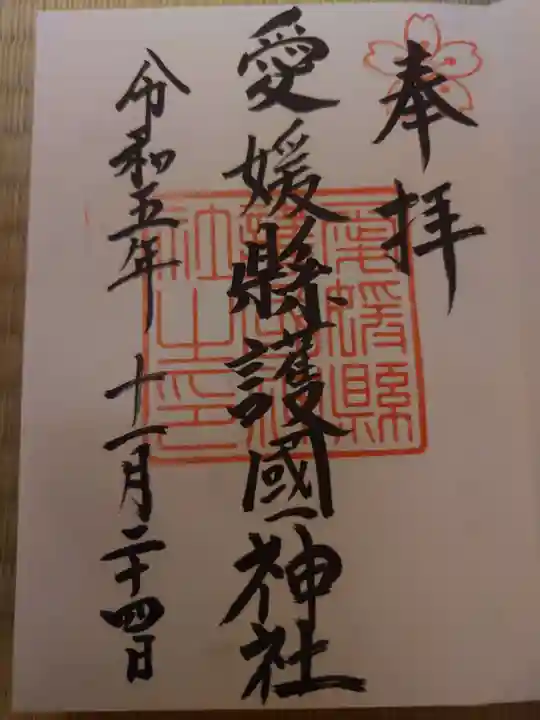 奉拝
愛媛縣護國神社
令和五年 十一月二十四日
愛媛縣
護國神
社之印